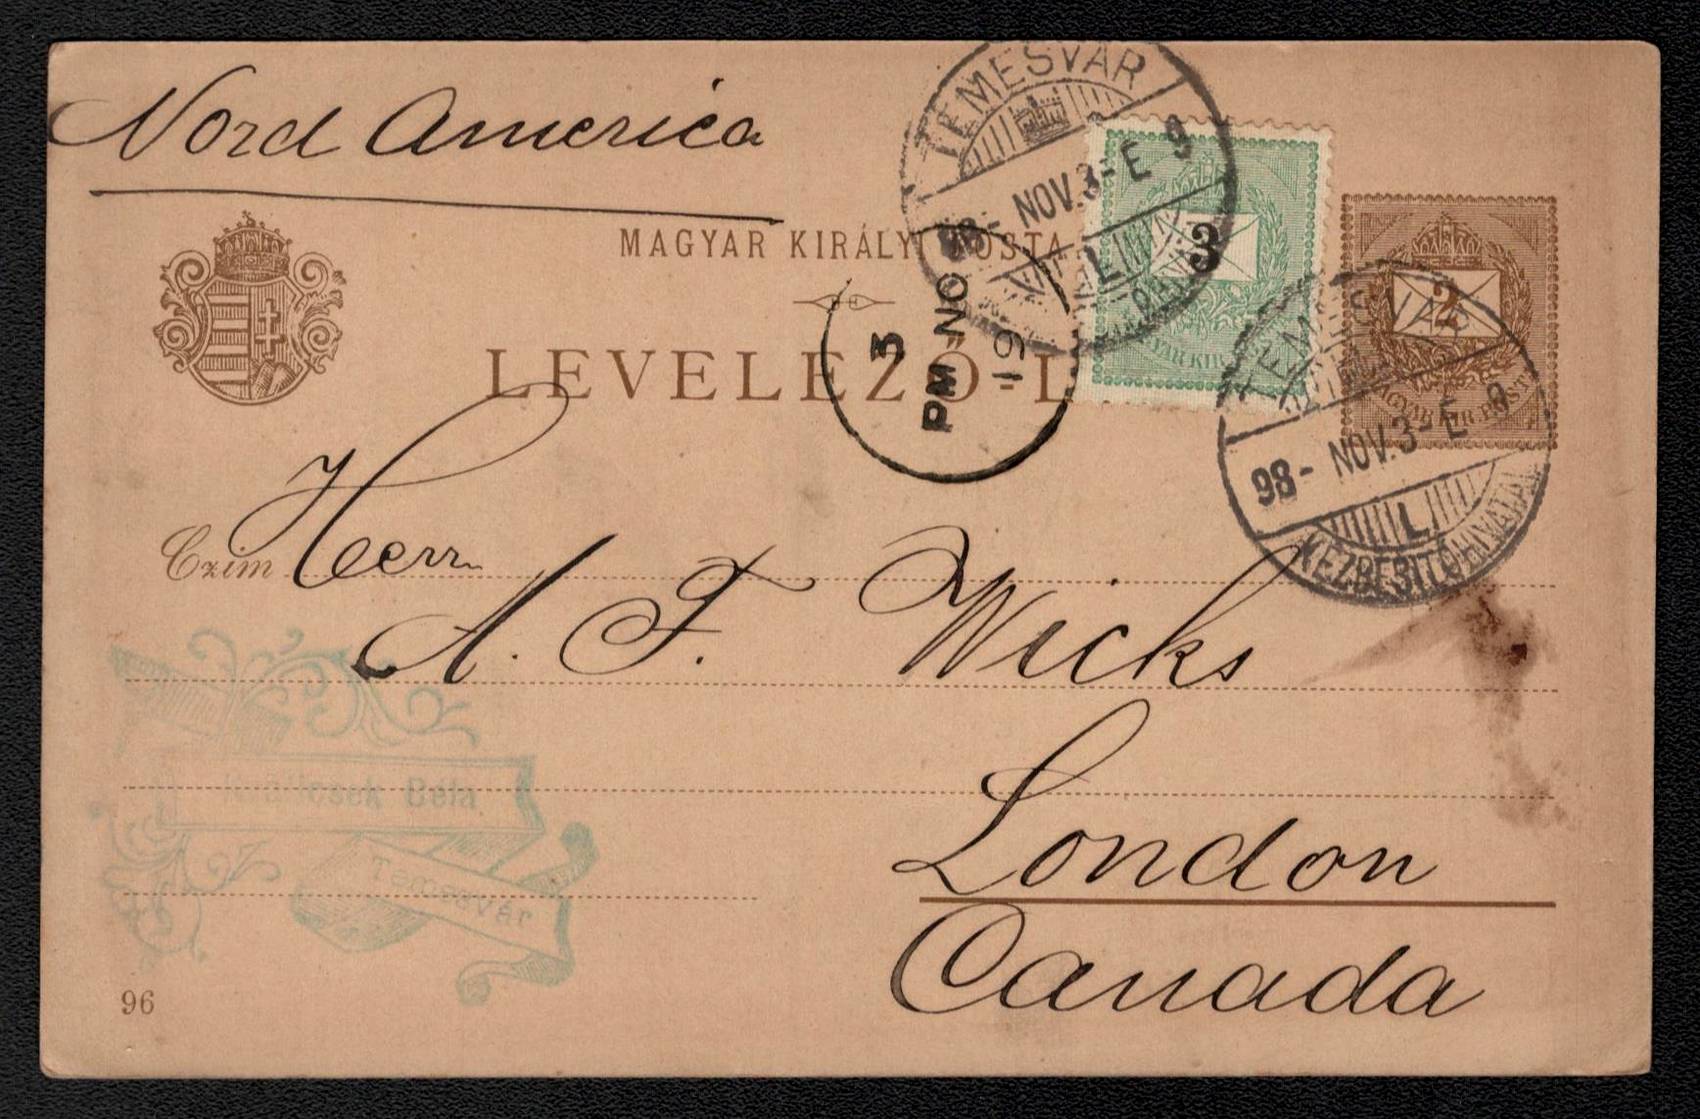 Nord America
TEMESVÁR
98- NOV. 3- E 9
MAGYAR KIRÁLYI POSTA
3
LEVELEZŐ-L
3
PM
NO
19
2
MAGYAR KIR. POSTA
TEMESVÁR
98- NOV. 3- E 9
L
KÉZBESITŐ HIVATAL
Czim
Herr
A. F. Wicks
Béla
Temesvár
London
Canada
96